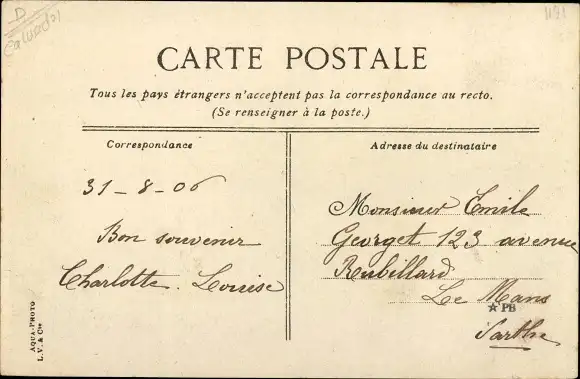 D
Calvados
1121
CARTE POSTALE
Tous les pays étrangers n'acceptent pas la correspondance au recto.
(Se renseigner à la poste.)
Correspondance
31-8-06
Bon souvenir
Charlotte. Louise
Adresse du destinataire
Monsieur Emile
Georget 123 avenue
Rubillard
Le Mans
PB
Sarthe
AQUA-PHOTO
L.V. & Cie